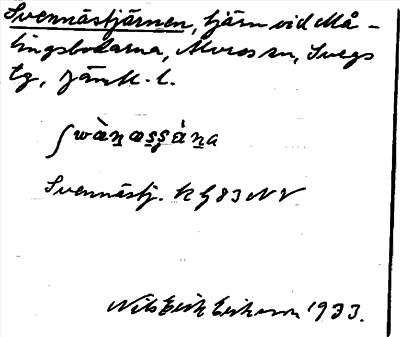 Svennästjärnen, tjärn vid Må-
lingsbodarna, Älvros sn, Svegs
tg, Jämtl. l.
ʃwàn̠æs̠s̠ä́n̠a
Svennästj. K G 83 NV
Nils Erik Eriksson 1933.